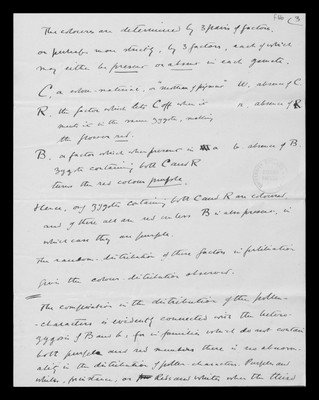 3
The colours are determined by 3 pairs of factors,
or perhaps more strictly, by 3 factors, each of which
may either be present or absent in each gamete.
C, a colour-material, or "mother of pigment" W, absence of C
R, the factor which lets C off when it r, absence of R
meets it in the same zygote, making
the flower red.
B, a factor which when present in a b absence of B.
zygote containing both C and R
turns the red colour purple.
Hence, only zygotes containing both C and R are coloured,
and of these all are red unless B is also present, in
which case they are purple.
The random distribution of these factors in fertilisation
gives the colour-distribution observed.
The complication in the distribution of the pollen-
characters is evidently connected with the hetero-
zygosis of B and b, for in families which do not contain
both purple and red members there is no abnorm-
ality in the distribution of pollen-characters. Purples and
whites, for instance, or Reds and whites, when the third